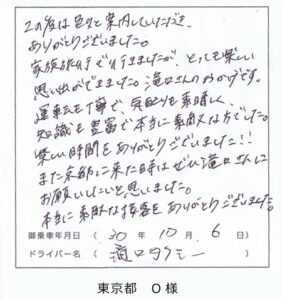 この度は色々と案内していただき、
ありがとうございました。
家族旅行で行きましたが、とても楽しい
思い出ができました。滝口さんのおかげです。
運転も丁寧で、気配りも素晴しく、
知識も豊富で本当に素敵な方でした。
楽しい時間をありがとうございました!!
また京都に来た時はぜひ滝口さんに
お願いしたいと思いました。
本当に素敵な接客をありがとうございました。
御乗車年月日 ( 30年 10月 6日)
ドライバー名 ( 滝口タクシー )
東京都 O様